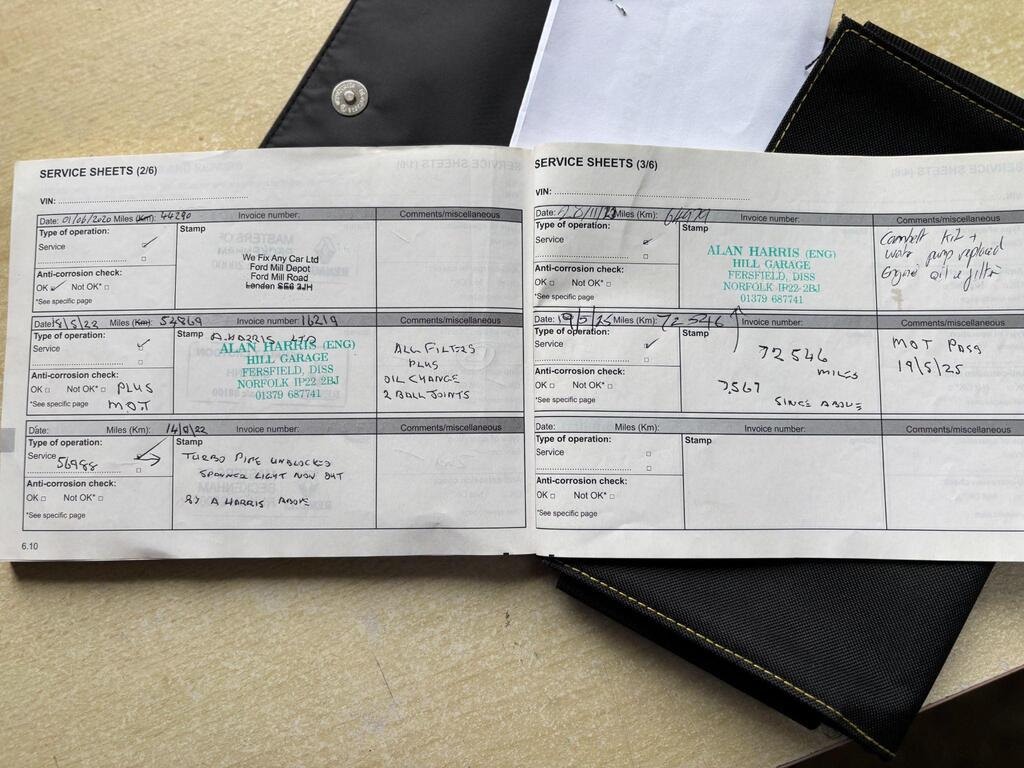 SERVICE SHEETS (2/6)
VIN:
Date: 01/06/2020 Miles (Km): 44290 Invoice number: Comments/miscellaneous
Type of operation:
Service
Stamp
We Fix Any Car Ltd
Ford Mill Depot
Ford Mill Road
London SE6 3JH
Anti-corrosion check:
OK Not OK*
*See specific page
Date: 18/5/22 Miles (Km): 54869 Invoice number: 16219 Comments/miscellaneous
Type of operation:
Service
Stamp A. HARRIS LTD
ALAN HARRIS (ENG)
HILL GARAGE
FERSFIELD, DISS
NORFOLK IP22 2BJ
01379 687741
ALL FILTERS
PLUS
OIL CHANGE
2 BALL JOINTS
Anti-corrosion check:
OK Not OK* PLUS
*See specific page MOT
Date: Miles (Km): 14/8/22 Invoice number: Comments/miscellaneous
Type of operation:
Service 56988
Stamp
TURBO PIPE UNBLOCKED
SPANNER LIGHT NOW OUT
BY A HARRIS ABOVE
Anti-corrosion check:
OK Not OK*
*See specific page
6.10
SERVICE SHEETS (3/6)
VIN:
Date: Miles (Km): 64979 Invoice number: Comments/miscellaneous
Type of operation:
Service
Stamp
ALAN HARRIS (ENG)
HILL GARAGE
FERSFIELD, DISS
NORFOLK IP22-2BJ
01379 687741
Cambelt Kit +
water pump replaced
Engine oil & filter
Anti-corrosion check:
OK Not OK*
*See specific page
Date: 19/5/25 Miles (Km): 72546 Invoice number: Comments/miscellaneous
Type of operation:
Service
Stamp
72546
MILES
7567
SINCE ABOVE
MOT PASS
19/5/25
Anti-corrosion check:
OK Not OK*
*See specific page
Date: Miles (Km): Invoice number: Comments/miscellaneous
Type of operation:
Service
Stamp
Anti-corrosion check:
OK Not OK*
*See specific page